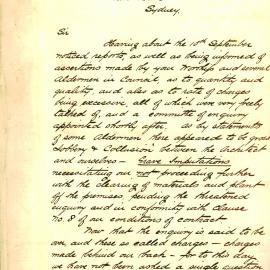 Sydney.
Sir
Having about the 10th September
noticed reports, as well as being informed of
assertions made by your Worship and several
Aldermen in Council, as to quantity and
quality, and also as to rate of charges
being excessive, all of which were very freely
talked of, and a committee of enquiry
appointed shortly after as by statements
of some Aldermen there appeared to be
& Collusion between the Architect
and ourselves - Grave Imputations
necessitating our not proceeding further
with the clearing of materials and plant
off the premises, pending the threatened
enquiry and in conformity with Clause
No. 8 of our conditions of contract
Now that the enquiry is said to be
over, and these so called charges - charges
made behind our back - for to this day
we have not been asked a single question